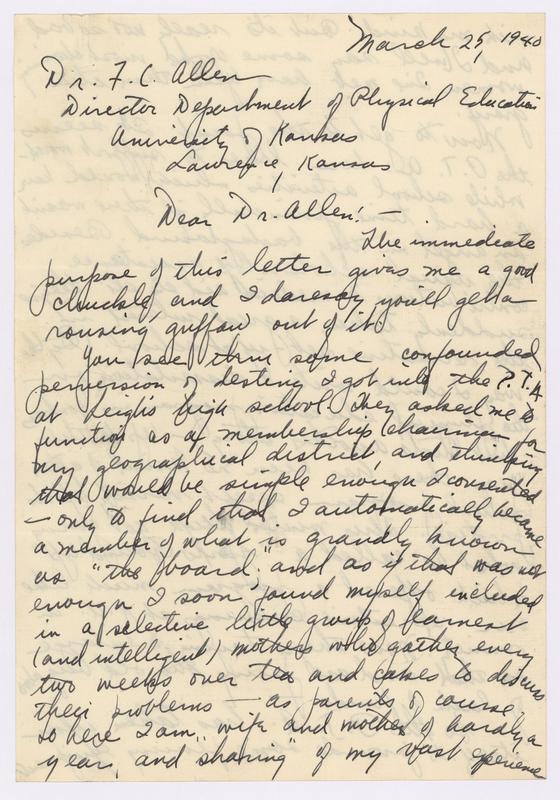 March 25, 1940
Dr. F. C. Allen
Director Department of Physical Education
University of Kansas
Lawrence, Kansas
Dear Dr. Allen: —
The immediate
purpose of this letter gives me a good
chuckle, and I daresay you'll get a
rousing guffaw out of it.
You see, thru some confounded
perversion of destiny I got into the P.T.A.
at Leigh's high school. They asked me to
function as a membership chairman for
my geographical district, and thinking
that would be simple enough I consented
— only to find that I automatically became
a member of what is grandly known
as "the board," and as if that was not
enough I soon found myself included
in a selective little group of earnest
(and intelligent) mothers who gather every
two weeks over tea and cakes to discuss
their problems — as parents of course,
so here I am, wife and mother of hardly a
year, and sharing of my vast xperience